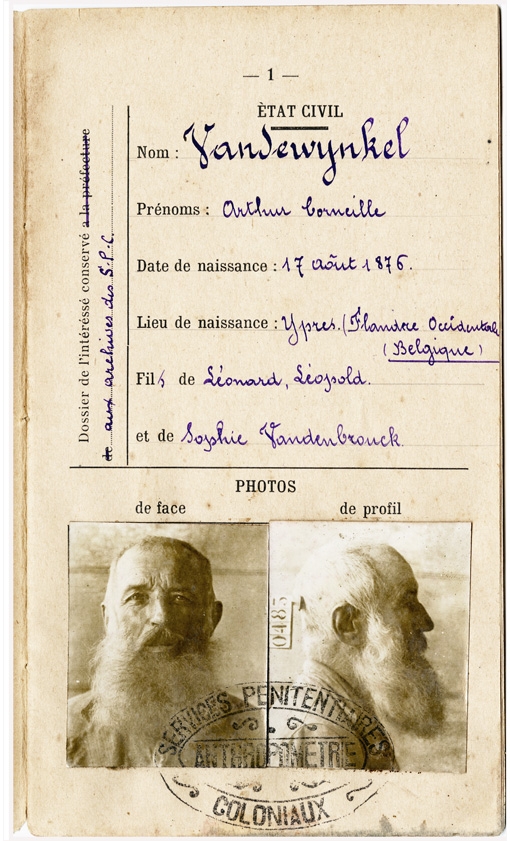 — 1 —
ÈTAT CIVIL
Nom : Vandewynkel
Prénoms : Arthur Corneille
Date de naissance : 17 août 1876.
Lieu de naissance : Ypres. (Flandre Occidentale
(Belgique)
Fils de Léonard, Léopold.
et de Sophie Vandenbrouck
Dossier de l'intéréssé conservé a la préfecture
de aux archives des S.P.C.
PHOTOS
de face de profil
0485
SERVICES PENITENTIAIRES
ANTHROPOMETRIE
COLONIAUX